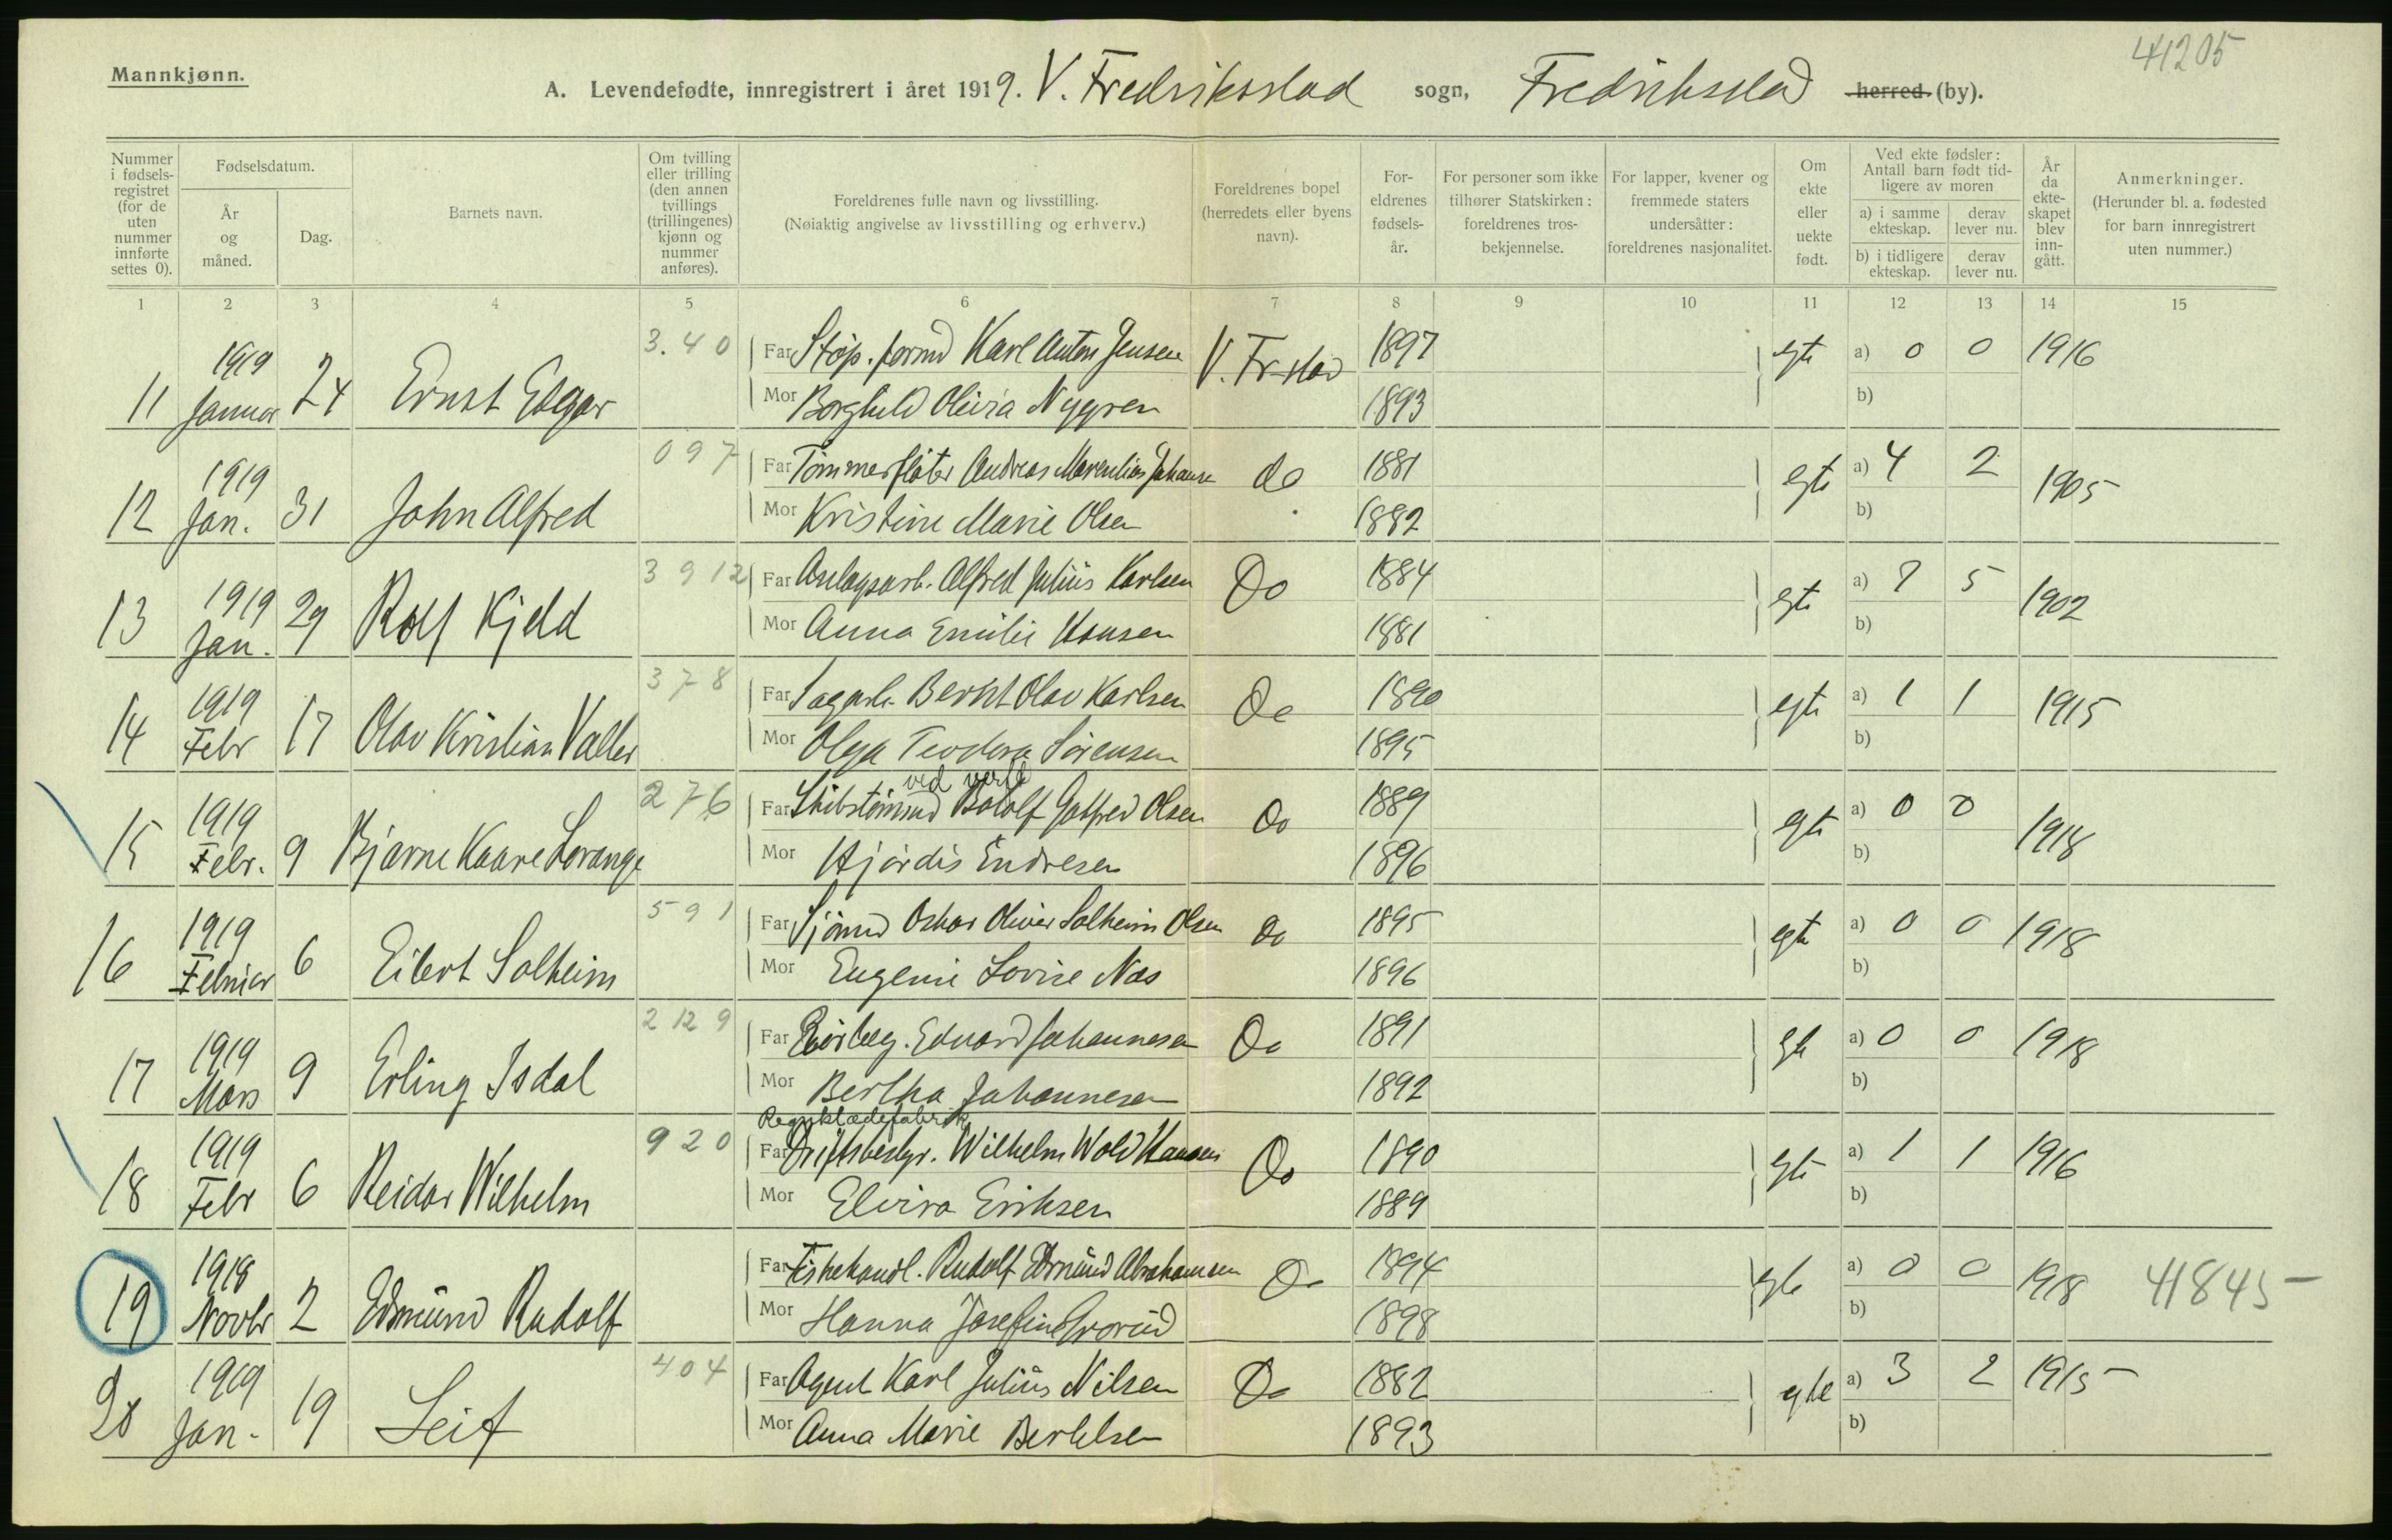 41205
Mannkjønn.
A. Levendefødte, innregistrert i året 1919. V. Fredriksstad sogn, Fredriksstad herred (by).
Nummer i fødselsregistret (for de uten nummer innførte settes 0).
Fødselsdatum.
År og måned.
Dag.
Barnets navn.
Om tvilling eller trilling (den annen tvillings (trillingenes) kjønn og nummer anføres).
Foreldrenes fulle navn og livsstilling.
(Nøiaktig angivelse av livsstilling og erhverv.)
Foreldrenes bopel (herredets eller byens navn).
Foreldrenes fødselsår.
For personer som ikke tilhører Statskirken: foreldrenes trosbekjennelse.
For lapper, kvener og fremmede staters undersåtter: foreldrenes nasjonalitet.
Om ekte eller uekte født.
Ved ekte fødsler: Antall barn født tidligere av moren
a) i samme ekteskap.
derav lever nu.
b) i tidligere ekteskap.
derav lever nu.
År da ekteskapet blev inngått.
Anmerkninger.
(Herunder bl. a. fødested for barn innregistrert uten nummer.)
1 2 3 4 5 6 7 8 9 10 11 12 13 14 15
3.40 Far Støp.formd Karl Anton Jensen V. Fr-stad 1897 egte a) 0 0 1916
11 1919 Januar 24 Ernst Edgar Mor Borghild Olivia Nygren 1893 b)
097 Far Tømmerfløter Andreas Johansen do 1881 egte a) 4 2 1905
12 1919 Jan. 31 John Alfred Mor Kristine Marie Olsen 1882 b)
3912 Far Anlagsarb. Alfred Julius Karlsen Do 1884 egte a) 7 5 1902
13 1919 Jan. 29 Rolf Kjeld Mor Anna Emilie Hansen 1881 b)
378 Far Sagarb. Bernt Olav Karlsen Do 1890 egte a) 1 1 1915
14 1919 Febr 17 Olav Kristian Valler Mor Olga Teodora Sørensen 1895 b)
ved verft
276 Far Skibstømmd Botolf Gotfred Olsen Do 1889 egte a) 0 0 1918
15 1919 Febr. 9 Bjarne Kaare Lorange Mor Hjørdis Endresen 1896 b)
591 Far Sjømd Oskar Oliver Solheim Olsen Do 1895 egte a) 0 0 1918
16 1919 Februar 6 Eilert Solheim Mor Eugenie Lovise Næs 1896 b)
2129 Far Edvard Johannesen Do 1891 egte a) 0 0 1918
17 1919 Mars 9 Erling Isdal Mor Bertha Johannesen 1892 b)
Regnklædefabrik
920 Far Driftsbestyr. Wilhelm Wold Hansen Do 1890 egte a) 1 1 1916
18 1919 Febr 6 Reidar Wilhelm Mor Elvira Eriksen 1889 b)
Far Fiskehandl. Rudolf Edmund Abrahamsen Do 1894 egte a) 0 0 1918 41845
19 1918 Novbr 2 Edmund Rudolf Mor Hanna Josefine Grorud 1898 b)
404 Far Agent Karl Julius Nilsen Do 1882 egte a) 3 2 1915
20 1919 Jan. 19 Leif Mor Anna Marie Bertelsen 1893 b)